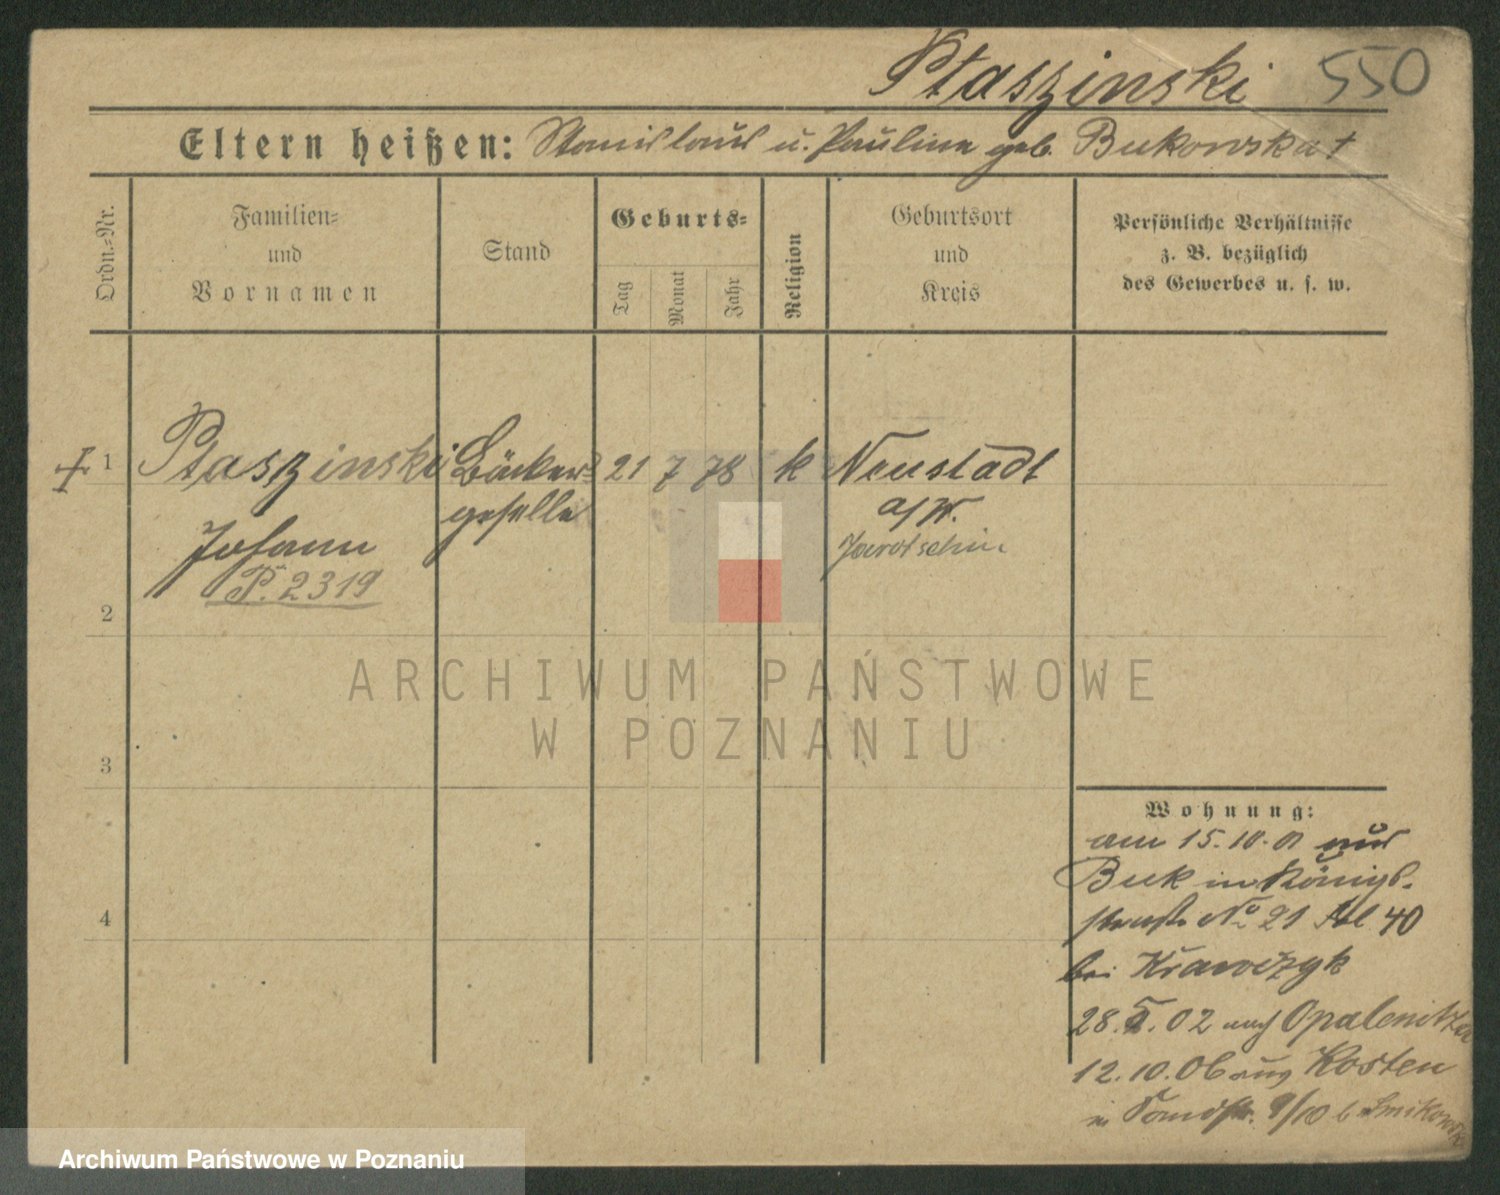 Ptaszinski 550
Eltern heißen: Stanislaus u. Pauline geb. Bukowska †
Ordn.-Nr.
Familien-
und
Vornamen
Stand
Geburts-
Tag
Monat
Jahr
Religion
Geburtsort
und
Kreis
Persönliche Verhältnisse
z. B. bezüglich
des Gewerbes u. s. w.
1 Ptaszinski Bäcker- 21 7 78 k Neustadt
geselle a/W.
Johann Jarotschin
P. 2319
2
3
4
ARCHIWUM PAŃSTWOWE
W POZNANIU
Wohnung:
am 15.10.01 aus
Buk in Königs-
straße No 21 40
bei Krawczyk
28. 02 nach Opalenitza
12.10.06 aus Kosten
9/10 b
Archiwum Państwowe w Poznaniu